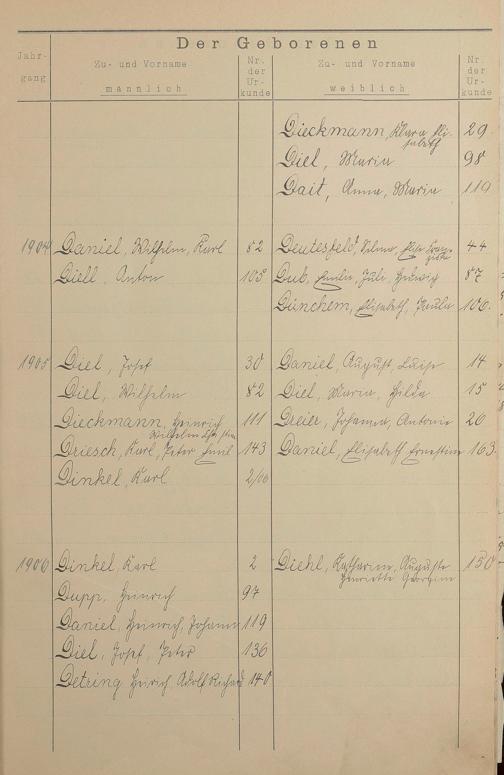 Der Geborenen
Jahr-
gang
Zu- und Vorname
männlich
Nr.
der
Ur-
kunde
Zu- und Vorname
weiblich
Nr.
der
Ur-
kunde
Dieckmann, Klara Eli- 29
sabeth
Diel, Maria 98
Dait, Anna, Maria 119
1904 Daniel, Wilhelm, Karl 82 Deutesfeld, 44
Diell, Anton 105 Dub, Emilie, Juli, Hedwig 87
Dünchem, Elisabeth, Paula 106.
1905 Diel, Josef 30 Daniel, August Luise 14
Diel, Wilhelm 82 Diel, Maria, Hilda 15
Dieckmann, Heinrich 111 Dreier, Johanna, Antonie 20
Wilhelm
Driesch, Karl, Peter Emil 143 Daniel, Elisabeth Ernestine 163.
Dinkel, Karl 2/06
1906 Dinkel, Karl 2 Diehl, Katharina, Auguste 150
Henriette Georgine
Dupp, Heinrich 97
Daniel, Heinrich, Johann 119
Diel, Josef, Peter 136
Detring Heinrich, Adolf Richard 140